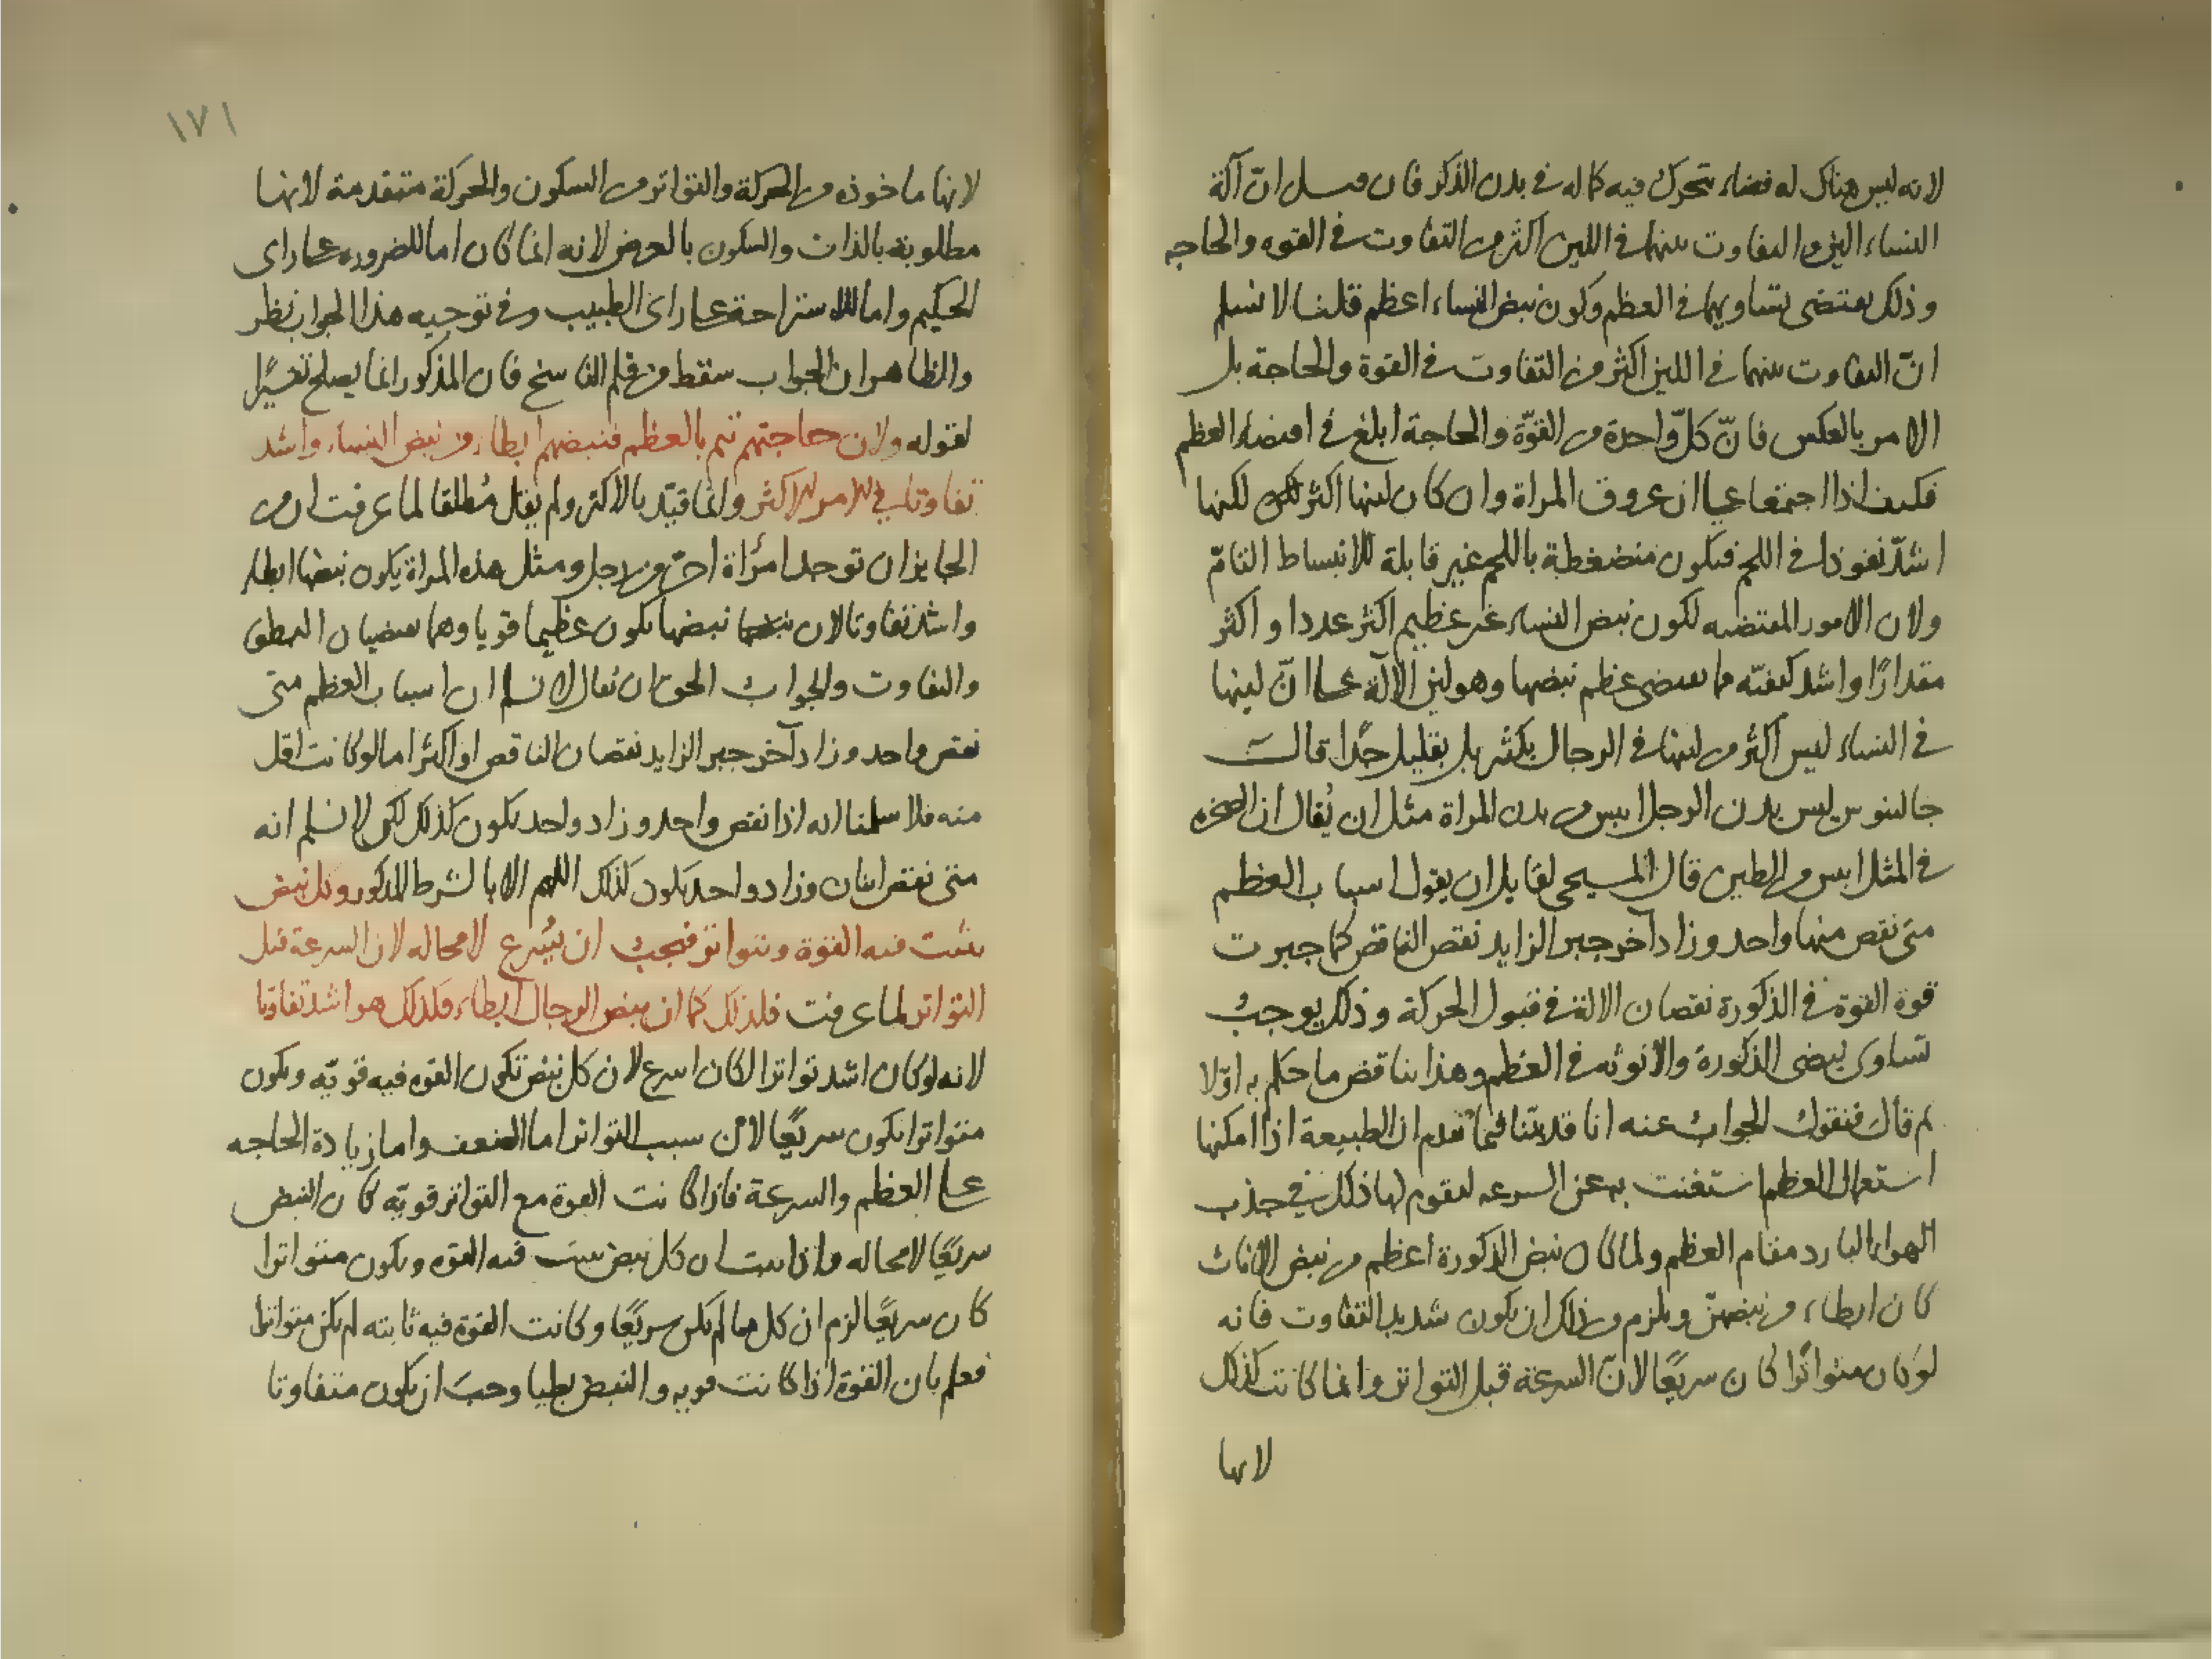 لانه ليس هناك له فضاء يتحرك فيه كما له في بدن الذكر فان قيل ان آلة
النساء الين والتفاوت بينهما في اللين اكثر من التفاوت في القوه والحاجه
وذلك يقتضى تساويهما في العظم وكون نبض النساء اعظم قلنا لا نسلم
ان التفاوت بينهما في اللين اكثر من التفاوت في القوة والحاجة بل
الامر بالعكس فانّ كلّ واحدة من القوّة والحاجة ابلغ في اقتضاء العظم
فكيف اذا اجتمعا على ان عروق المراة وان كان لينها اكثر لكنها
اشدّ نفوذا في اللحم فيكون منضغطة باللحم غير قابلة للانبساط التامّ
ولان الامور المقتضيه لكون نبض النساء غير عظيم اكثر عددا واكثر
مقدارًا واشد كيفيّه مما يقتضى عظم نبضها وهو لين الآلة على انّ لينها
في النساء ليس اكثر من لينها في الرجال بكثير بل بقليل جدّا قالت
جالينوس ليس بدن الرجل ايبس من بدن المراة مثل ان يُقال ان الصخره
في المثل ايبس من الطين قال المسيحى لقايل ان يقول اسباب العظم
متى نقص منها واحد وزاد آخر جبر الزايد نقص الناقص كما جبرت
قوة القوة في الذكورة نقصان الالة في قبول الحركة وذلك يوجب
تساوى نبضى الذكورة والانوثه في العظم وهذا يناقض ما حكم به اوّلا
ثم قال فنقول الجواب عنه انا قد بيّنا فيما تقدم ان الطبيعة اذا امكنها
استعمال العظم استغنت به عن السرعه ليقوم لها ذلك في جذب
الهواء البارد مقام العظم ولما كان نبض الذكورة اعظم من نبض الاناث
كان ابطاء من نبضهنّ ويلزم من ذلك ان يكون شديد التفاوت فانه
لو كان متواترًا لكان سريعًا لانّ السرعة قبل التواتر وانما كانت كذلك
لانها
١٧١
لانها ماخوذه من الحركة والتواتر من السكون والحركة متقدمة لانها
مطلوبة بالذات والسكون بالعرض لانه انما كان اما للضروره على راى
الحكيم واما للاستراحة على راى الطبيب وفي توجيه هذا الجواب نظر
والظاهر ان الجواب سقط من قلم الناسخ فان المذكور انما يصلح تفسيرًا
لقوله ولان حاجتهم تتم بالعظم فنبضهم ابطاء من نبض النساء واشد
تفاوتا في الامر الاكثر وانما قيّد بالاكثر ولم يقل مُطلقا لما عرفت ان من
الجايز ان توجد امرأة احرّ من رجل ومثل هذه المراة يكون نبضها ابطاء
واشد تفاوتا لان نبضها يكون عظيما قويا وهما يقتضيان البطؤ
والتفاوت والجواب الحق ان يقال لا نسلم ان اسباب العظم متى
نقص واحد وزاد آخر جبر الزايد نقصان الناقص اذا كثرا ما لو كانت اقل
منه فلا سلمنا انه اذا نقص واحد وزاد واحد يكون كذلك لكن لا نسلم انه
متى نقص اثنان وزاد واحد يكون كذلك اللهم الا بالشرط المذكور وكل نبض
يثبت فيه القوة ويتواتر فيجب ان يُسرع لا محاله لان السرعة قبل
التواتر لما عرفت فلذلك كما ان نبض الرجال ابطاء فكذلك هو اشد تفاوتا
لانه لو كان اشد تواترا لكان اسرع لان كل نبض تكون القوه فيه قويّه ويكون
متواترا يكون سريعًا لانّ سبب التواتر اما الضعف واما زيادة الحاجه
على العظم والسرعة فاذا كانت القوة مع التواتر قويّه كان النبض
سريعًا لا محاله واذا ثبت ان كل نبض يثبت فيه القوّه ويكون متواترا
كان سريعًا لزم ان كل ما لم يكن سريعًا وكانت القوة فيه ثابته لم يكن متواترا
فعلم بان القوة اذا كانت قويه والنبض بطيا وجب ان يكون متفاوتا